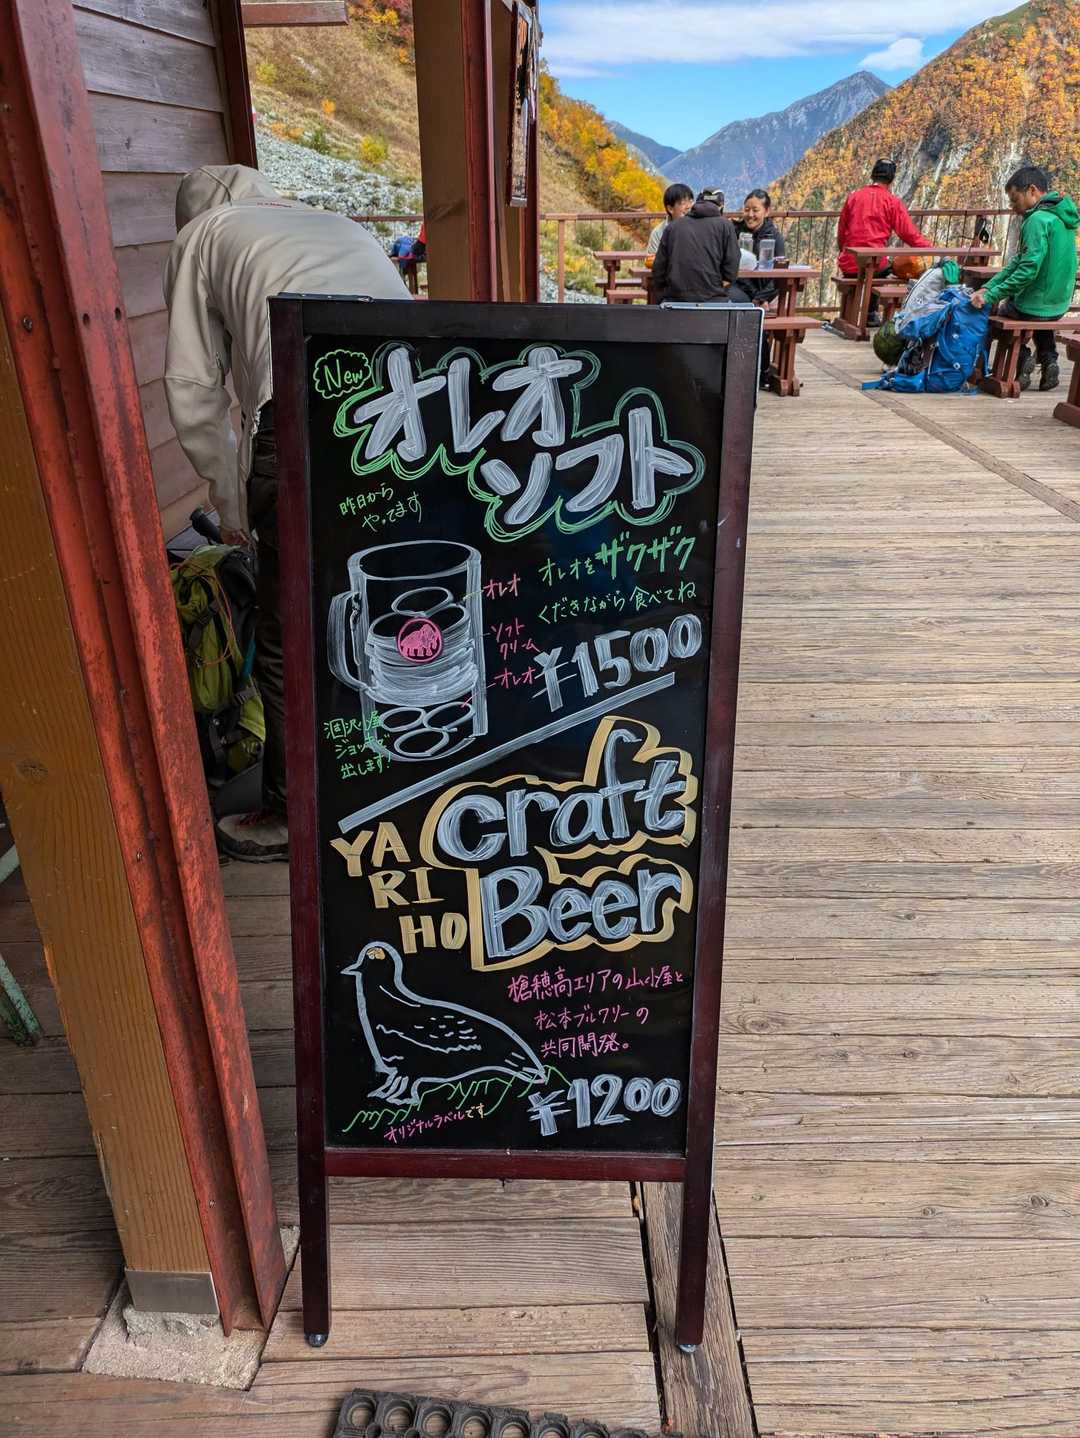 New
オレオ
ソフト
昨日から
やってます
オレオをザクザク
くだきながら食べてね
オレオ
ソフト
クリーム
オレオ
¥1500
涸沢小屋
ジョッキで
出します!
Craft
Beer
YA
RI
HO
槍穂高エリアの山小屋と
松本ブルワリーの
共同開発。
¥1200
オリジナルラベルです